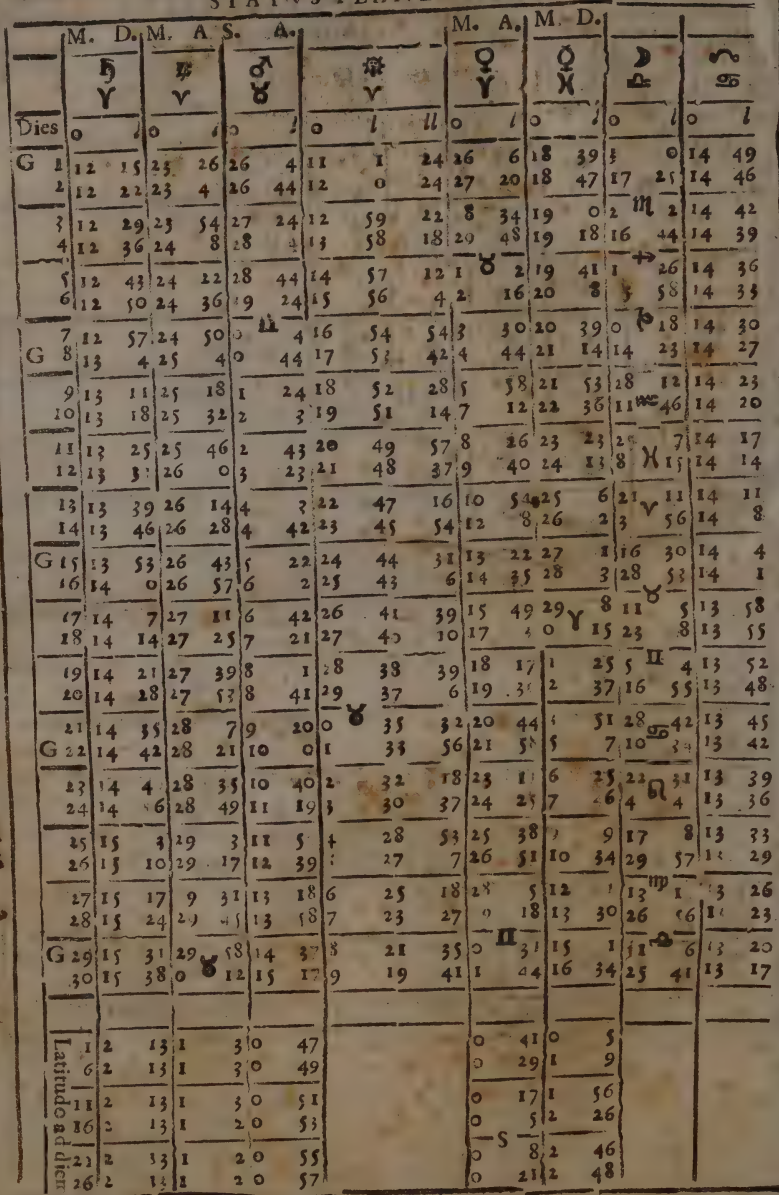 STATVS PLANE
M. D. M. A. S. A. M. A. M. D.
♄ ♃ ♂ ☀ ♀ ☿ ☽ ☊
♈ ♈ ♉ ♈ ♈ ♓ ♎ ♋
Dies o l o l o l o l ll o l o l o l o l
G 1 12 15 23 26 26 4 11 1 24 26 6 18 39 3 0 14 49
2 12 22 23 4 26 44 12 0 24 27 20 18 47 17 25 14 46
3 12 29 23 54 27 24 12 59 22 8 34 19 0 2 ♏ 2 14 42
4 12 36 24 8 28 4 13 58 18 29 48 19 18 16 44 14 39
5 12 43 24 22 28 44 14 57 12 1 ♉ 2 19 41 1 ♐ 26 14 36
6 12 50 24 36 29 24 15 56 4 2 16 20 8 58 14 33
7 12 57 24 50 0 ♊ 4 16 54 54 3 30 20 39 0 ♑ 18 14 30
G 8 13 4 25 4 0 44 17 53 42 4 44 21 14 14 23 14 27
9 13 11 25 18 1 24 18 52 28 5 58 21 53 28 12 14 23
10 13 18 25 32 2 3 19 51 14 7 12 22 36 11 ♒ 46 14 20
11 13 25 25 46 2 43 20 49 57 8 26 23 23 25 7 14 17
12 13 3 26 0 3 23 21 48 37 9 40 24 13 8 ♓ 15 14 14
13 13 39 26 14 4 3 22 47 16 10 54 25 6 21 11 14 11
14 13 46 26 28 4 42 23 45 54 12 8 26 2 3 ♈ 56 14 8
G 15 13 53 26 43 5 22 24 44 31 13 22 27 1 16 30 14 4
16 14 0 26 57 6 2 25 43 6 14 35 28 3 28 53 14 1
17 14 7 27 11 6 42 26 41 39 15 49 29 8 11 ♉ 5 13 58
18 14 14 27 25 7 21 27 40 10 17 3 0 ♈ 15 23 8 13 55
19 14 21 27 39 8 1 28 38 39 18 17 1 25 5 ♊ 4 13 52
20 14 28 27 53 8 41 29 37 6 19 31 2 37 16 55 13 48
21 14 35 28 7 9 20 0 ♉ 35 32 20 44 51 28 42 13 45
G 22 14 42 28 21 10 0 1 33 56 21 58 5 7 10 ♋ 13 42
23 14 4 28 35 10 40 2 32 18 23 1 6 25 22 31 13 39
24 14 6 28 49 11 19 3 30 37 24 25 7 6 4 ♌ 4 13 36
25 15 3 29 3 11 5 4 28 53 25 38 9 17 8 13 33
26 15 10 29 17 12 39 27 7 26 51 10 34 29 57 29
27 15 17 9 31 13 18 6 25 18 28 5 12 13 ♍ 1 3 26
28 15 24 29 45 13 58 7 23 27 18 13 30 26 56 23
G 29 15 31 29 58 14 37 8 21 35 0 ♊ 31 15 1 11 ♎ 6 13 20
30 15 38 0 ♉ 12 15 17 9 19 41 1 44 16 34 25 41 13 17
Latitudo ad diem
1 2 13 1 3 0 47 0 41 0 5
6 2 13 1 3 0 49 0 29 1 9
11 2 13 1 3 0 51 0 17 1 56
16 2 13 1 2 0 53 0 5 2 26
21 2 13 1 2 0 55 0 S 8 2 46
26 2 13 1 2 0 57 0 21 2 48